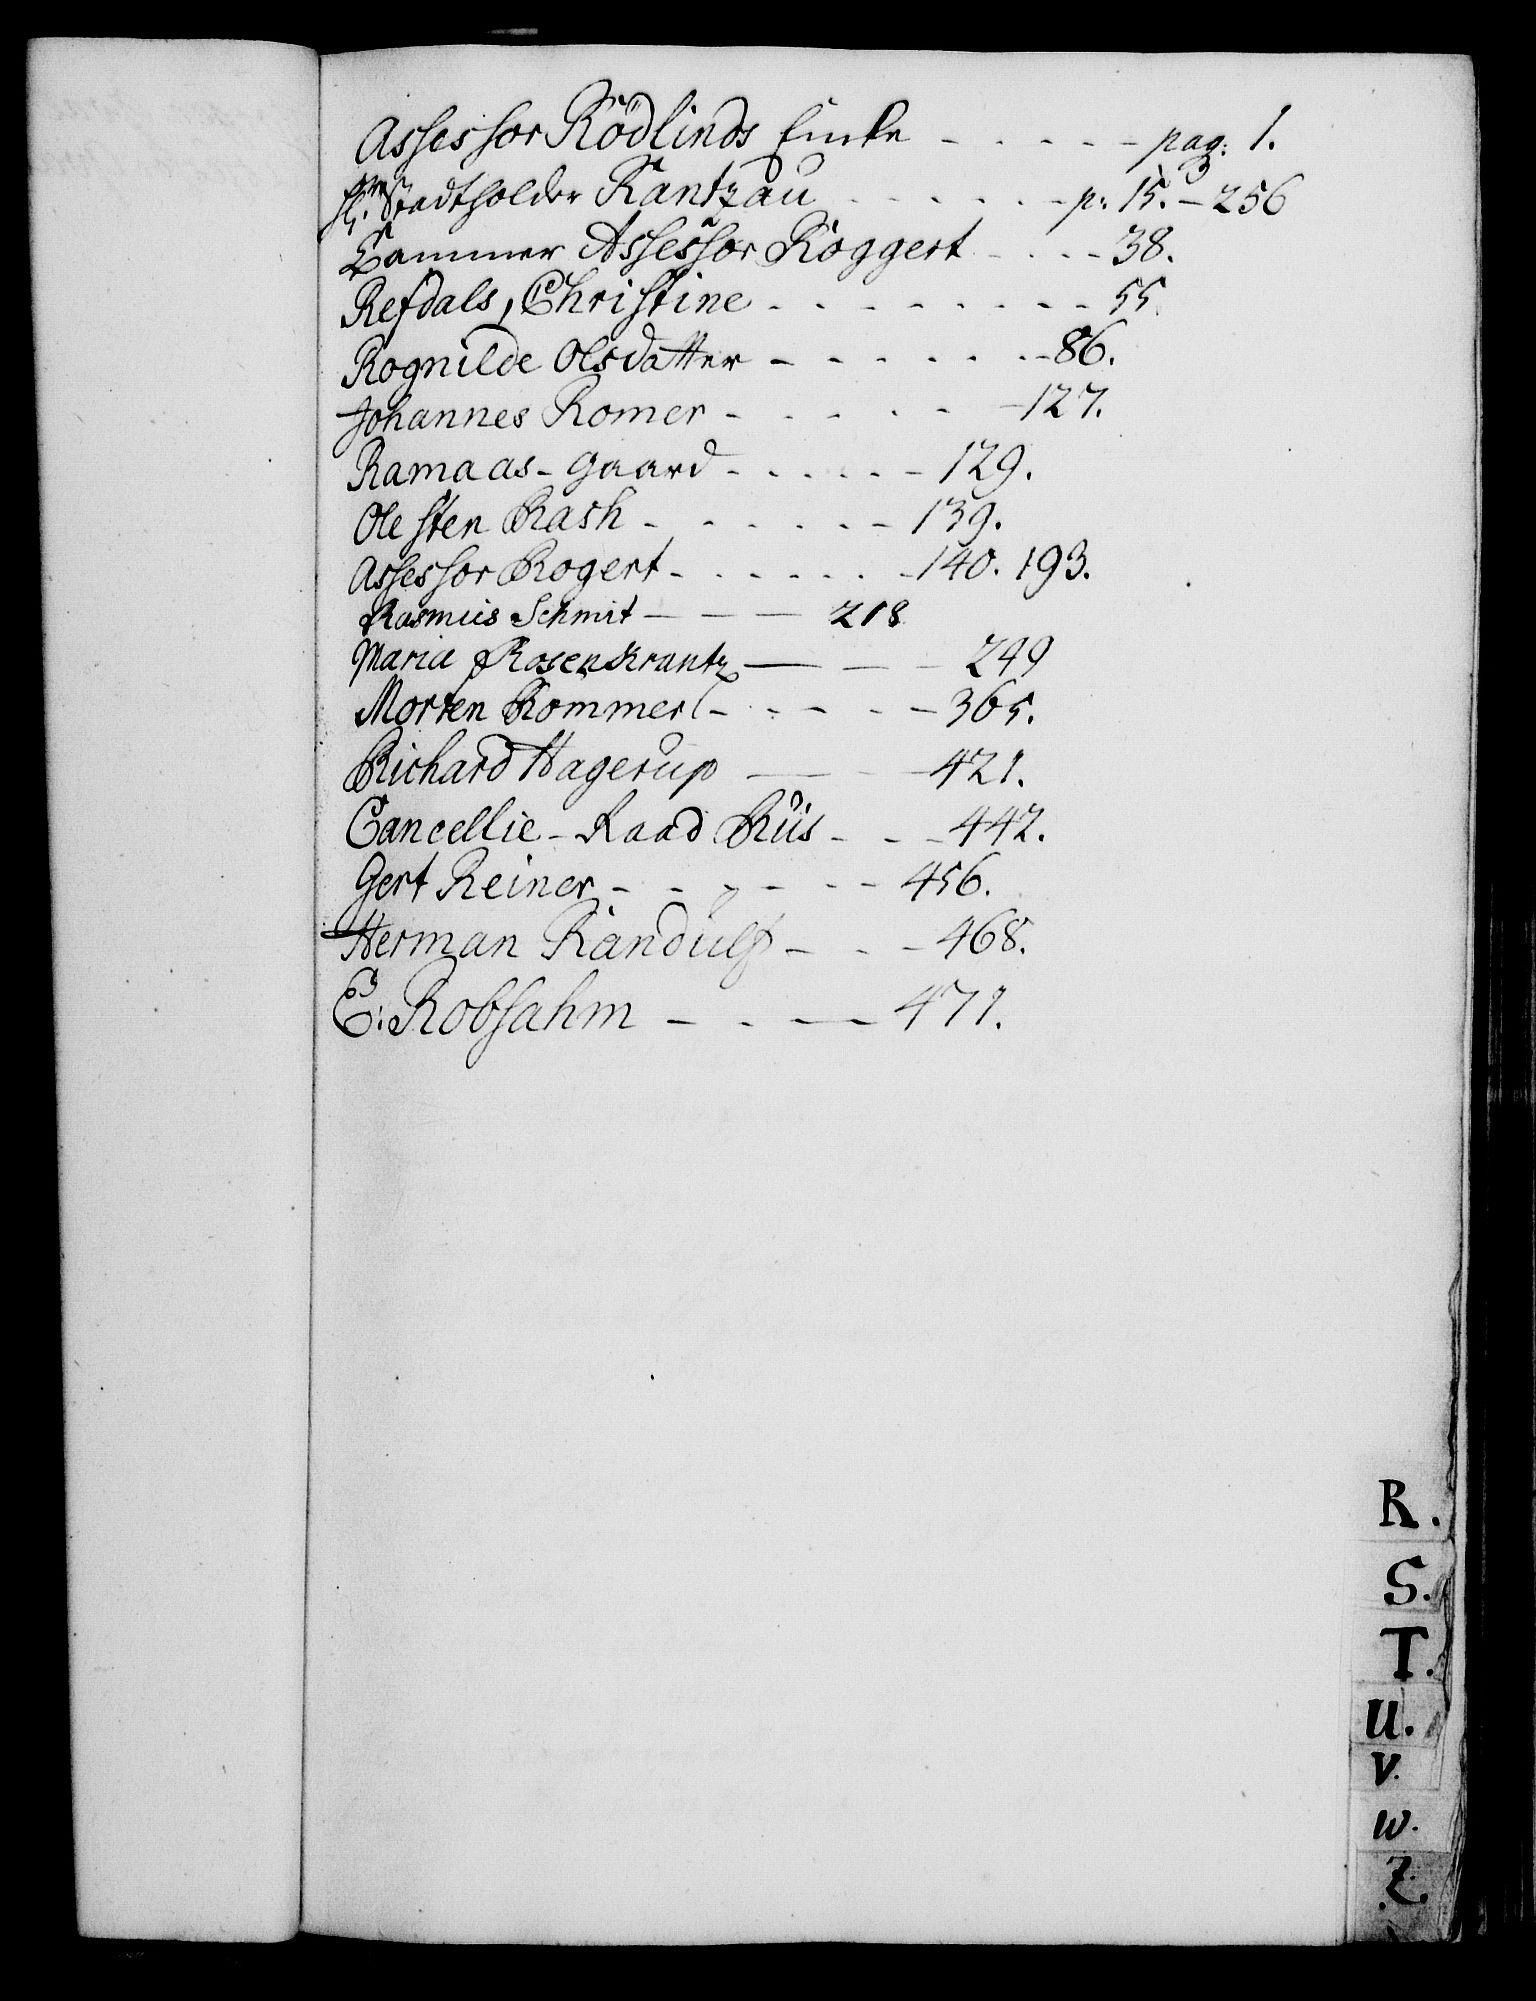 Assessor Rödlinds Encke - - - - - pag: 1.
Stadtholder Rantzau - - - - - - p: 15. - 256
Cammer Assessor Roggert - - - - 38.
Refdals, Christine - - - - - - - - 55.
Rognilde Olsdatter - - - - - - - 86.
Johannes Romer - - - - - - 127.
Ramaas-Gaard - - - - - - 129.
Ole sten Rash - - - - - - 139.
Assessor Rogert - - - - - - - 140. 193.
Rasmus Schmit - - - 218
Maria Rosenkrantz - - - 249
Morten Rommer - - - - - 365.
Richard Hagerup - - - 421.
Cancellie-Raad Rüs - - - 442.
Gert Reiner - - - - - - 456.
Herman Randulf - - - 468.
E: Robsahm - - - 471.
R.
S.
T.
U.
V.
W.
Z.